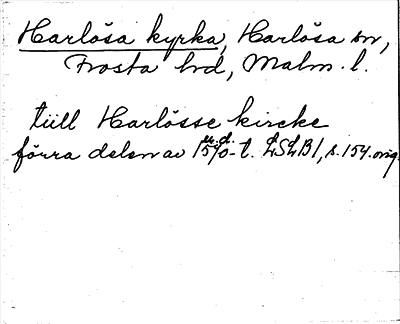 Harlösa kyrka, Harlösa sn,
Frosta hd, Malm. l.
tiill Harlösse kircke
förra delen av 1570-t. LSLB1, s. 154. orig.